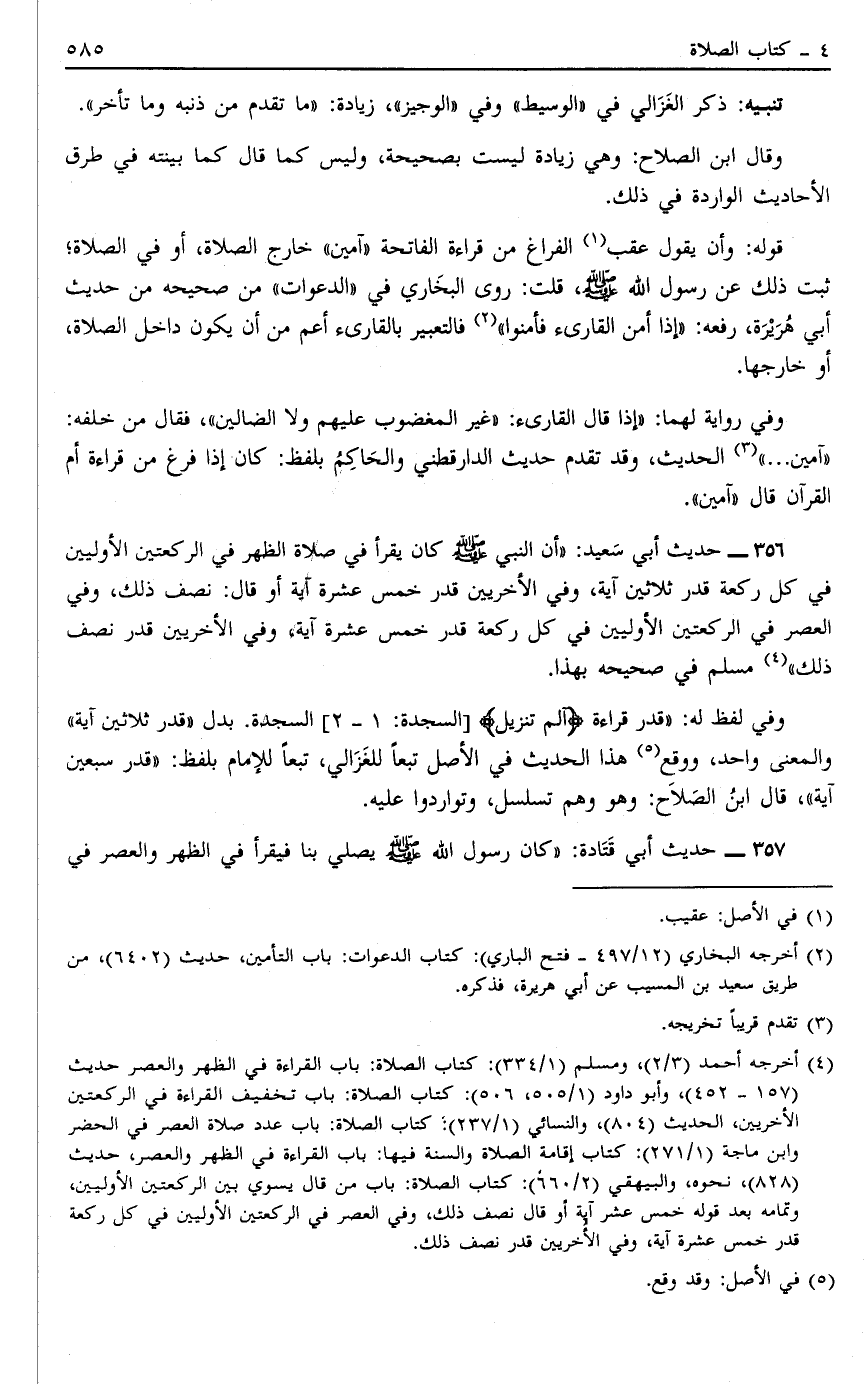 ٤ ـ كتاب الصلاة ٥٨٥
تنبيه: ذكر الغَزَالي في «الوسيط» وفي «الوجيز»، زيادة: «ما تقدم من ذنبه وما تأخر».
وقال ابن الصلاح: وهي زيادة ليست بصحيحة، وليس كما قال كما بينته في طرق
الأحاديث الواردة في ذلك.
قوله: وأن يقول عقب(١) الفراغ من قراءة الفاتحة «آمين» خارج الصلاة، أو في الصلاة؛
ثبت ذلك عن رسول الله ﷺ، قلت: روى البخَاري في «الدعوات» من صحيحه من حديث
أبي هُرَيْرَة، رفعه: «إذا أمن القارىء فأمنوا»(٢) فالتعبير بالقارىء أعم من أن يكون داخل الصلاة،
أو خارجها.
وفي رواية لهما: «إذا قال القارىء: «غير المغضوب عليهم ولا الضالين»، فقال من خلفه:
«آمين...»(٣) الحديث، وقد تقدم حديث الدارقطني والحَاكِمُ بلفظ: كان إذا فرغ من قراءة أم
القرآن قال «آمين».
٣٥٦ ـ حديث أبي سَعيد: «أن النبي ﷺ كان يقرأ في صلاة الظهر في الركعتين الأوليين
في كل ركعة قدر ثلاثين آية، وفي الأخريين قدر خمس عشرة آية أو قال: نصف ذلك، وفي
العصر في الركعتين الأوليين في كل ركعة قدر خمس عشرة آية، وفي الأخريين قدر نصف
ذلك»(٤) مسلم في صحيحه بهذا.
وفي لفظ له: «قدر قراءة ﴿آلم تنزيل﴾ [السجدة: ١ ـ ٢] السجدة. بدل «قدر ثلاثين آية»
والمعنى واحد، ووقع(٥) هذا الحديث في الأصل تبعاً للغَزَالي، تبعاً للإمام بلفظ: «قدر سبعين
آية»، قال ابنُ الصَلاَح: وهو وهم تسلسل، وتواردوا عليه.
٣٥٧ ـ حديث أبي قَتَادة: «كان رسول الله ﷺ يصلي بنا فيقرأ في الظهر والعصر في
(١) في الأصل: عقيب.
(٢) أخرجه البخاري (٤٩٧/١٢ ـ فتح الباري): كتاب الدعوات: باب التأمين، حديث (٦٤٠٢)، من
طريق سعيد بن المسيب عن أبي هريرة، فذكره.
(٣) تقدم قريباً تخريجه.
(٤) أخرجه أحمد (٢/٣)، ومسلم (٣٣٤/١): كتاب الصلاة: باب القراءة في الظهر والعصر حديث
(١٥٧ ـ ٤٥٢)، وأبو داود (٥٠٥/١، ٥٠٦): كتاب الصلاة: باب تخفيف القراءة في الركعتين
الأخريين، الحديث (٨٠٤)، والنسائي (٢٣٧/١): كتاب الصلاة: باب عدد صلاة العصر في الحضر
وابن ماجة (٢٧١/١): كتاب إقامة الصلاة والسنة فيها: باب القراءة في الظهر والعصر، حديث
(٨٢٨)، نحوه، والبيهقي (٦٦٠/٢): كتاب الصلاة: باب من قال يسوي بين الركعتين الأوليين،
وتمامه بعد قوله خمس عشر آية أو قال نصف ذلك، وفي العصر في الركعتين الأوليين في كل ركعة
قدر خمس عشرة آية، وفي الأخريين قدر نصف ذلك.
(٥) في الأصل: وقد وقع.